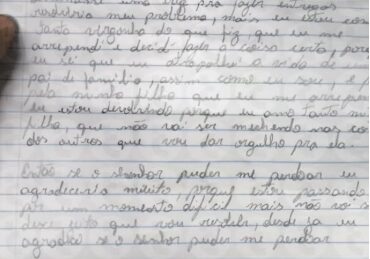 uma vez pra fazer entregas
resolveria meu problema, mais eu estou com
tanta vergonha do que fiz, que eu me
arrependi e decidi fazer a coisa certa, porq
eu sei que eu atrapalhei a vida de um
pai de familia, assim como eu sou, e p
pela minha filha que eu me arrepen
eu estou devolvendo porque eu amo tanto mi
filha, que não vai ser mechendo nas co
dos outros que vou dar orgulho pra ela.
Então se o senhor puder me perdoar eu
agradeceria muito, porque estou passando
por um momento dificil mais não vai s
desse jeito que vou resolver, desde ja eu
agradeço se o senhor puder me perdoar